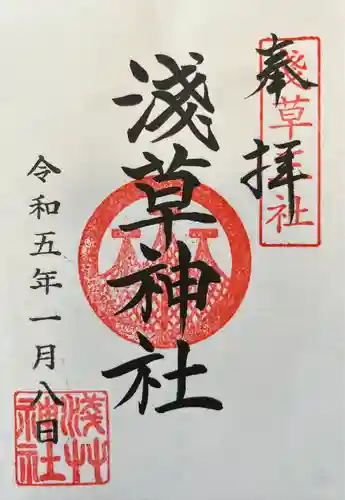 奉拝
淺草三社
淺草神社
令和五年一月八日
淺草神社